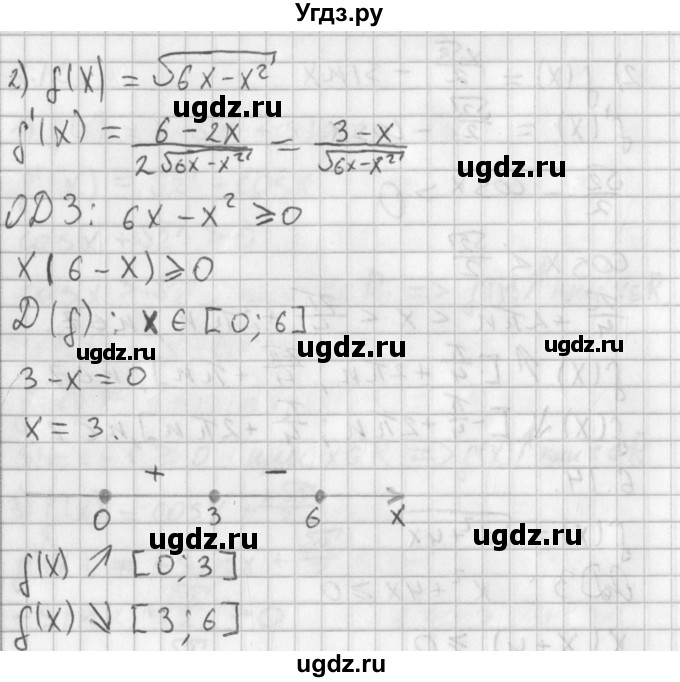 Угдз.ру
2) f(x) = √(6x − x²)
ugdz.ru
f'(x) = (6 − 2x)/(2√(6x − x²)) = (3 − x)/√(6x − x²)
ugdz.ru
ОДЗ: 6x − x² ⩾ 0
x(6 − x) ⩾ 0
D(f): x ∈ [0; 6]
ugdz.ru ugdz.ru ugdz.ru
3 − x = 0
x = 3.
ugdz.ru ugdz.ru
+ −
0 3 6 x
ugdz.ru ugdz.ru
f(x) ↗ [0; 3]
f(x) ↘ [3; 6]
ugdz.ru
ugdz.ru